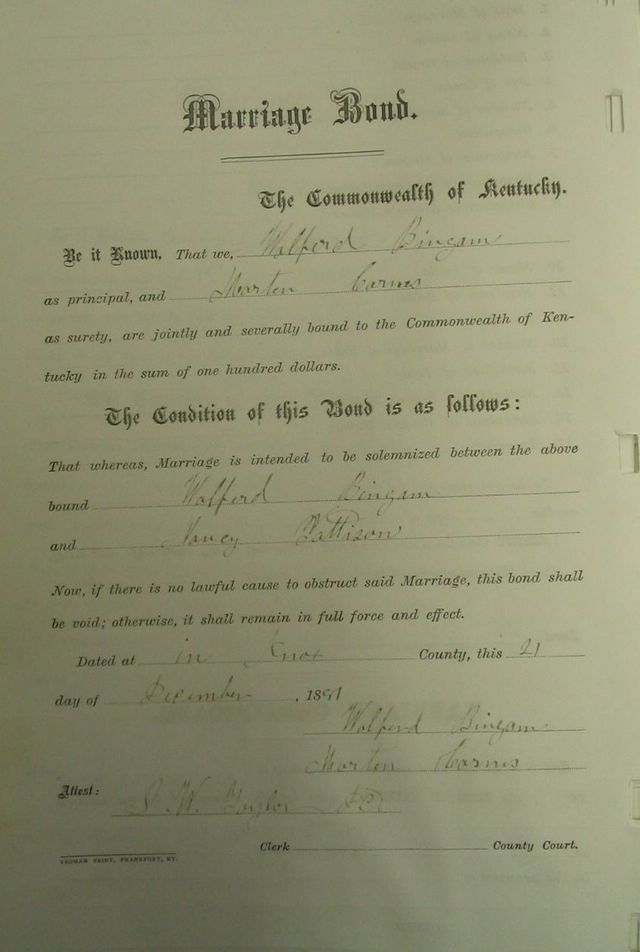 Marriage Bond.
The Commonwealth of Kentucky.
Be it Known, That we, Walford Bingam
as principal, and Marten Carnes
as surety, are jointly and severally bound to the Commonwealth of Ken-
tucky in the sum of one hundred dollars.
The Condition of this Bond is as follows:
That whereas, Marriage is intended to be solemnized between the above
bound Walford Bingam
and Nancy Pattison
Now, if there is no lawful cause to obstruct said Marriage, this bond shall
be void; otherwise, it shall remain in full force and effect.
Dated at in Knox County, this 21
day of December, 1891
Walford Bingam
Marten Carnes
Attest:
J. W. Taylor
Clerk County Court.
YEOMAN PRINT, FRANKFORT, KY.